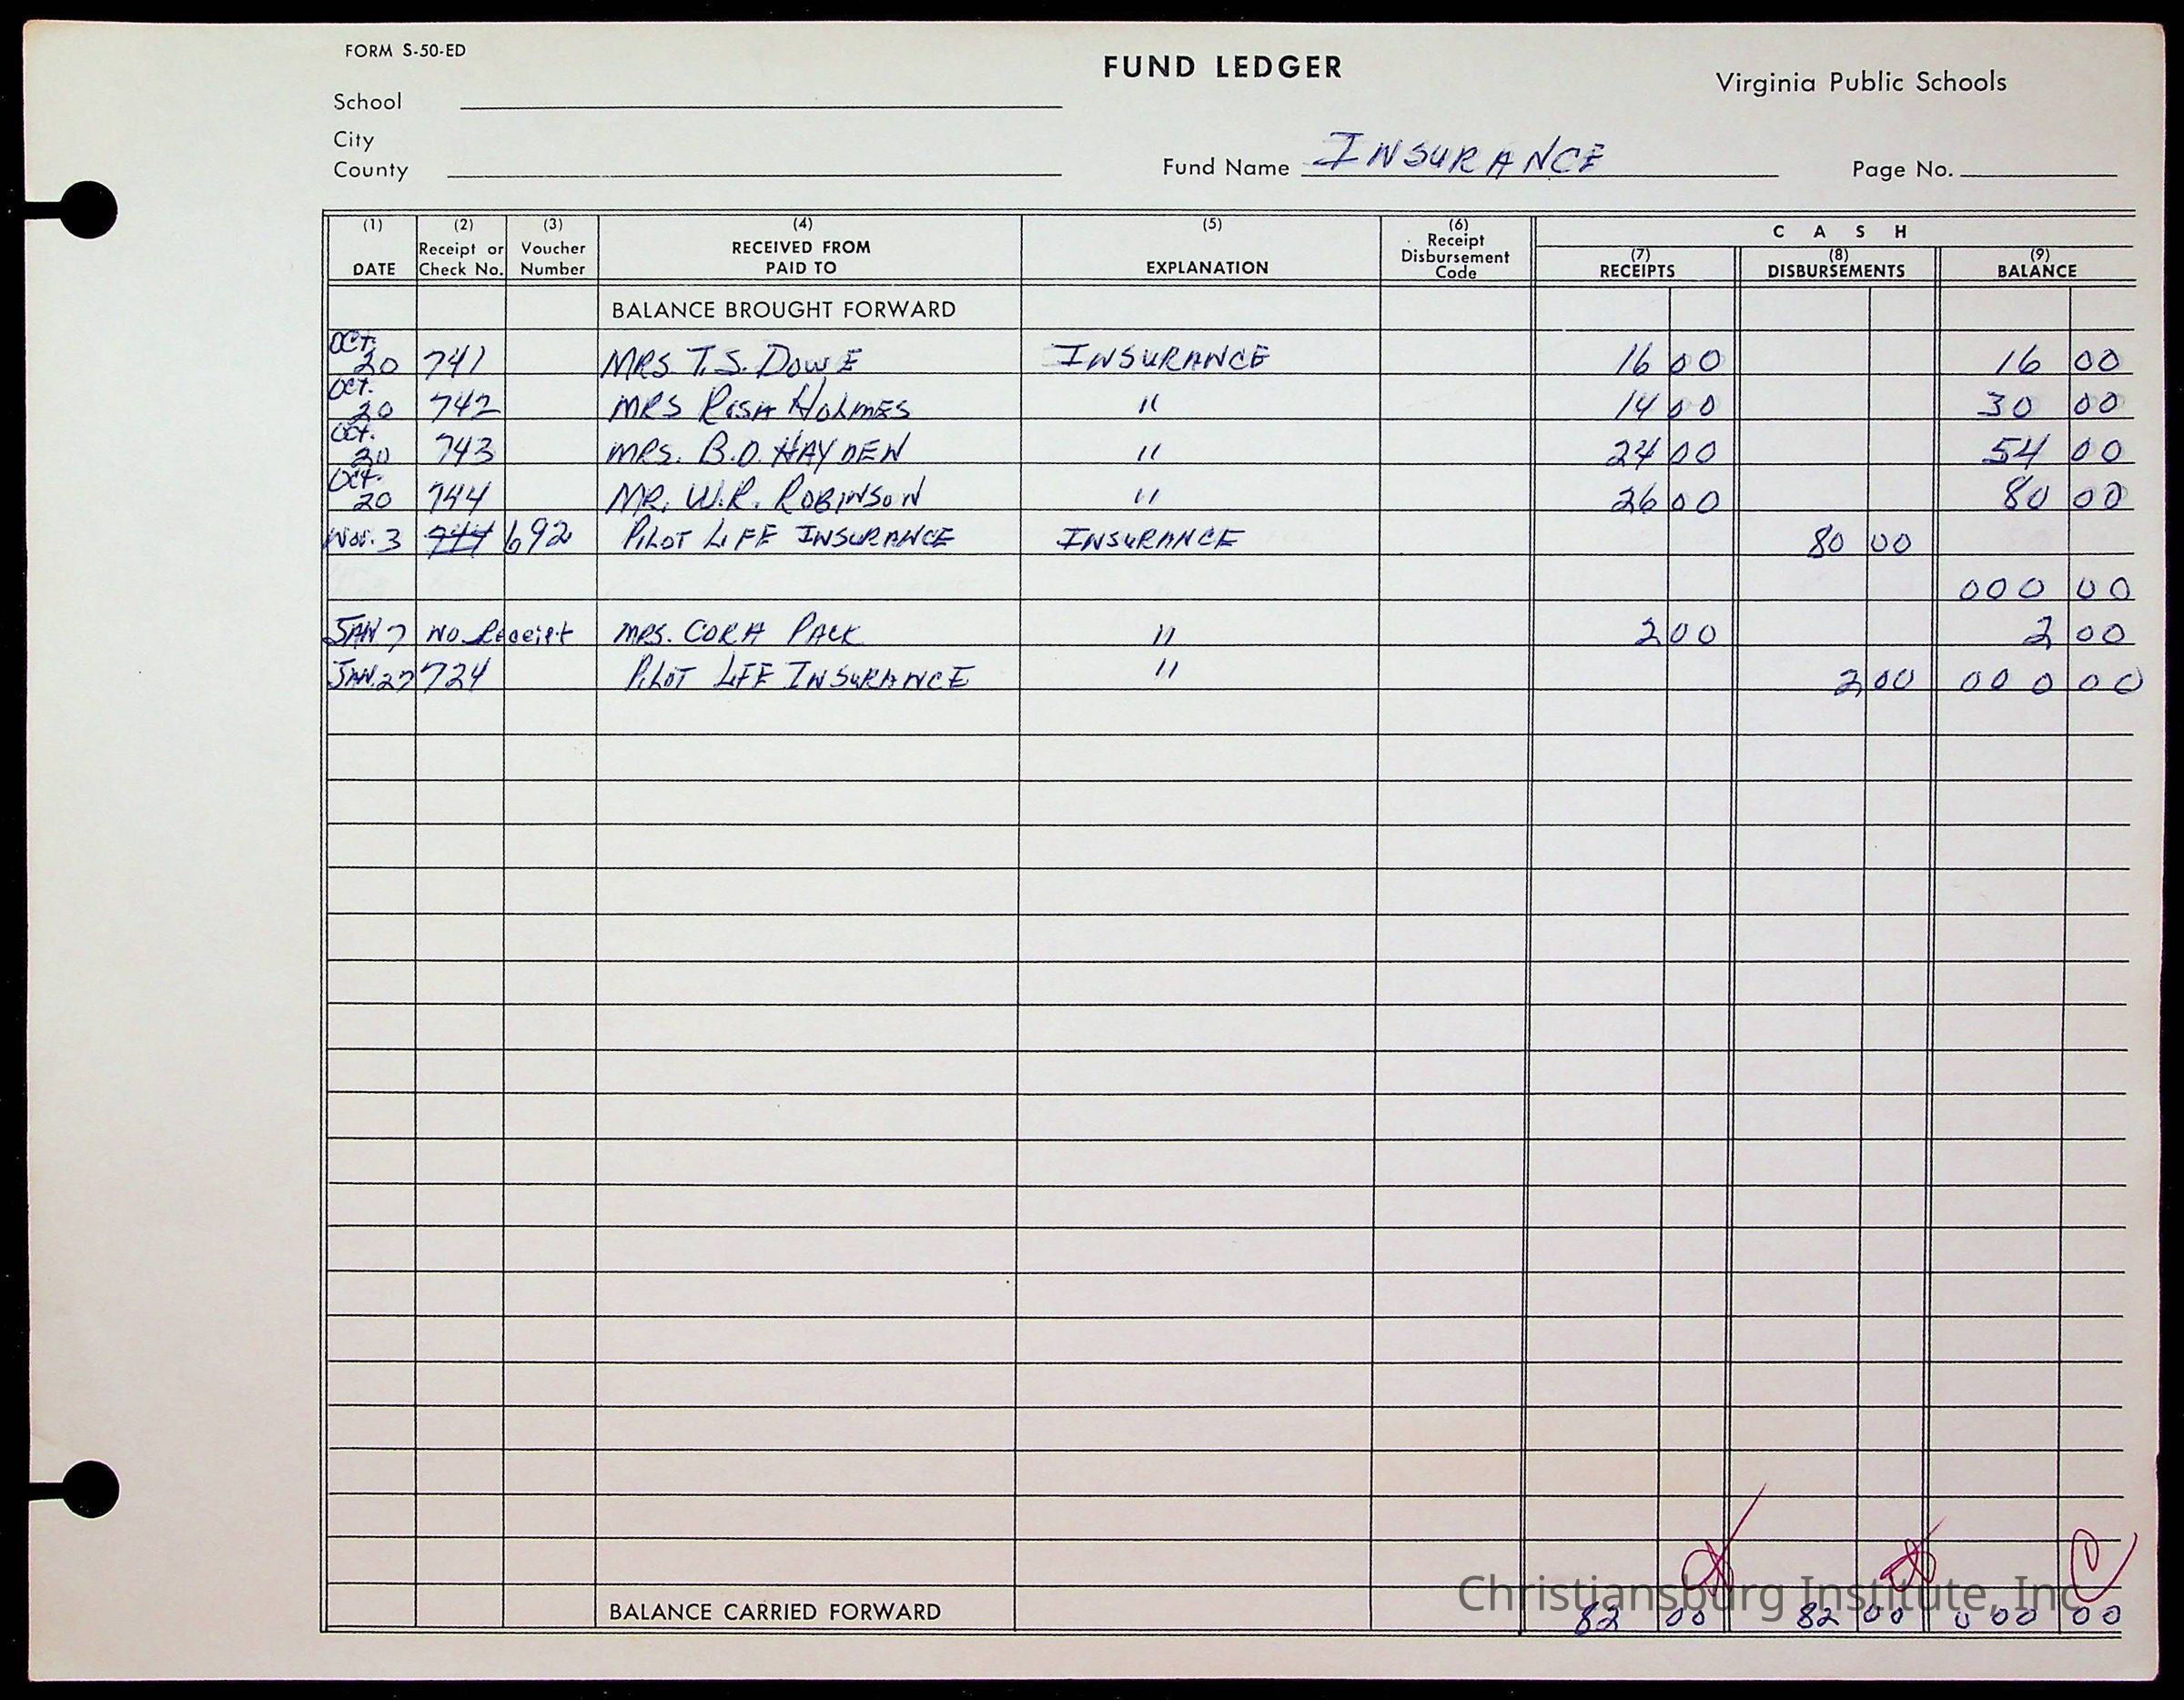 FORM S-50-ED
FUND LEDGER
Virginia Public Schools
School
City
County
Fund Name INSURANCE
Page No.
(1) DATE (2) Receipt or Check No. (3) Voucher Number (4) RECEIVED FROM PAID TO (5) EXPLANATION (6) Receipt Disbursement Code CASH (7) RECEIPTS (8) DISBURSEMENTS (9) BALANCE
BALANCE BROUGHT FORWARD
OCT. 20 741 MRS. T.S. DOWE INSURANCE 16 00 16 00
OCT. 20 742 MRS ROSA HOLMES " 14 00 30 00
OCT. 20 743 MRS. B.D. HAYDEN " 24 00 54 00
OCT. 20 744 MR. W.R. ROBINSON " 26 00 80 00
NOV. 3 744 692 PILOT LIFE INSURANCE INSURANCE 80 00
000 00
JAN 7 NO Receipt MRS. CORA PACK " 2 00 2 00
JAN. 27 724 PILOT LIFE INSURANCE " 2 00 000 00
BALANCE CARRIED FORWARD 82 00 82 00 000 00
Christiansburg Institute, Inc